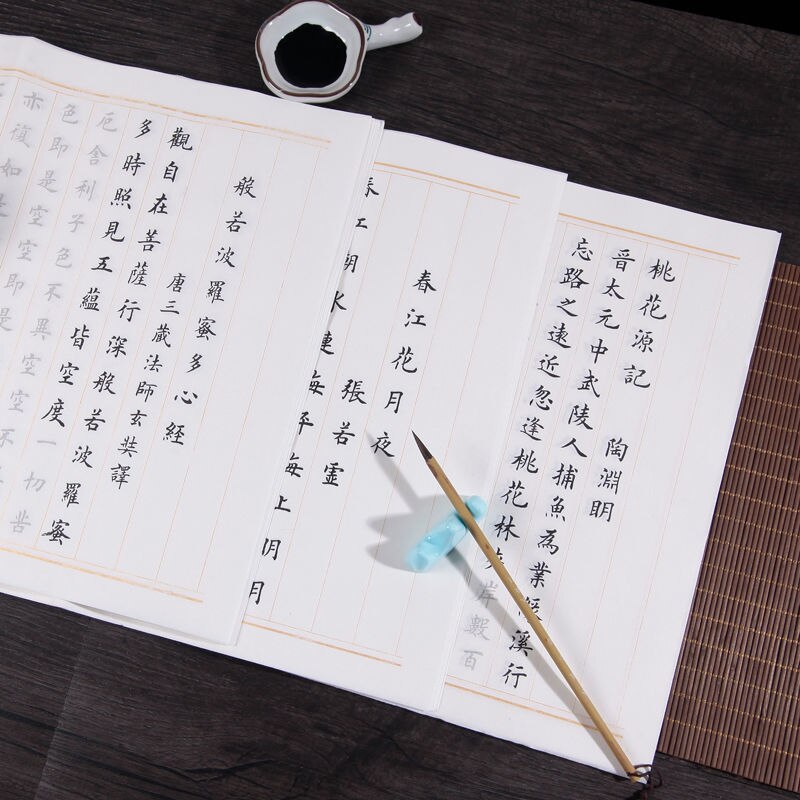 桃花源記 陶淵明
晉太元中武陵人捕魚為業緣溪行
忘路之遠近忽逢桃花林夾岸數百
春江花月夜
張若虛
春江潮水連海平海上明月
般若波羅蜜多心經
唐三藏法師玄奘譯
觀自在菩薩行深般若波羅蜜
多時照見五蘊皆空度一切苦
厄舍利子色不異空空不
色即是空空即是
亦復如是